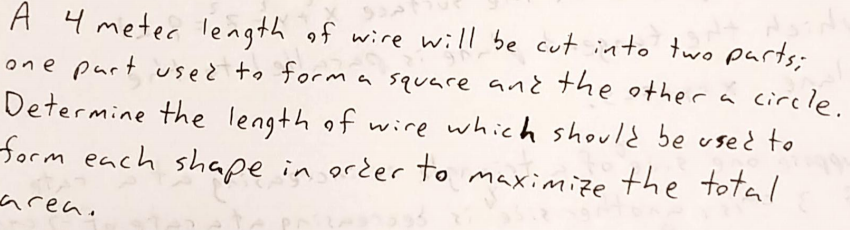 A 4 meter length of wire will be cut into two parts;
one part used to form a square and the other a circle.
Determine the length of wire which should be used to
form each shape in order to maximize the total
area.